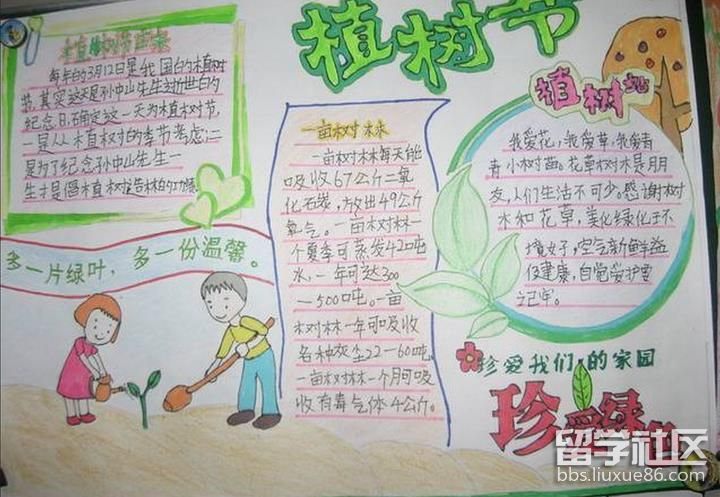 植树节
植树节由来
每年的3月12日是我国的植树
节,其实这天是孙中山先生逝世的
纪念日,确定这一天为植树节,
一是从植树的季节考虑;二
是为了纪念孙中山先生一
生才是倡植树造林的功绩
多一片绿叶,多一份温馨。
一亩树林
一亩树林每天能
吸收67公斤二氧
化石炭,放出49公斤
氧气。一亩树林一
个夏季可蒸发420吨
水,一年可达300
—500吨。一亩
树林一年可吸收
各种灰尘22—60吨,
一亩树林一个月可吸
收有毒气体4公斤。
植树
我爱花,我爱草,我爱青
青小树苗。花草树木是朋
友,人们生活不可少。感谢树
木和花草,美化绿化
环境好,空气新鲜益
健康,自觉爱护要
记牢。
珍爱我们的家园
珍爱绿
留学社区
bbs.liuxue86.com